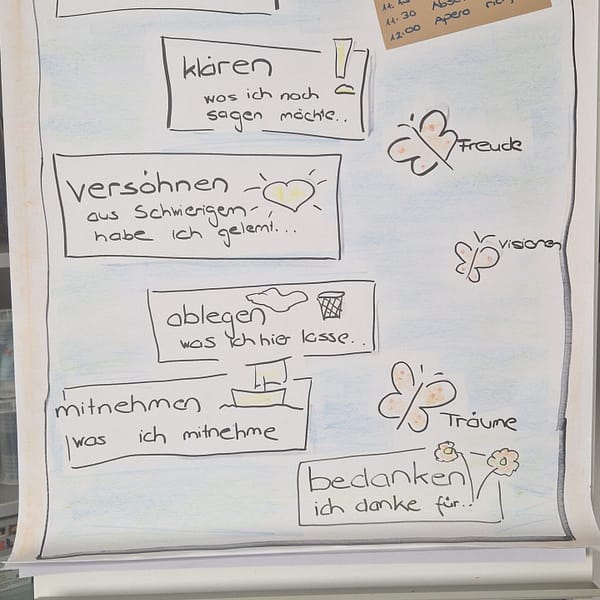 11.30 Abs
12.00 Apero
klären
was ich noch
sagen möchte..
Freude
versöhnen
aus Schwierigem
habe ich gelernt...
Visionen
ablegen
was ich hier lasse..
mitnehmen
was ich mitnehme
Träume
bedanken
ich danke für..